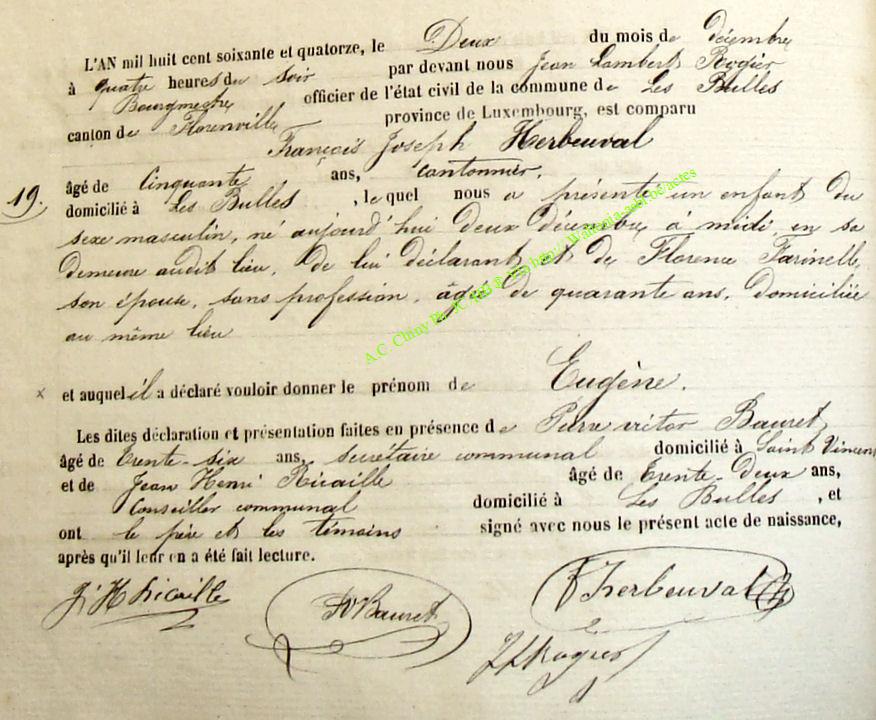 L'AN mil huit cent soixante et quatorze, le Deux du mois de décembre
à quatre heures du soir par devant nous Jean Lambert Rogier
Bourgmestre officier de l'état civil de la commune de Les Bulles
canton de Florenville province de Luxembourg, est comparu
François Joseph Herbeuval
âgé de Cinquante ans, cantonnier,
19. domicilié à Les Bulles, lequel nous a présenté un enfant du
sexe masculin, né aujourd'hui deux décembre à midi, en sa
demeure audit lieu, de lui déclarant et de Florence Farinelle,
son épouse, sans profession, âgée de quarante ans, domiciliée
au même lieu
x et auquel il a déclaré vouloir donner le prénom de Eugène.
Les dites déclaration et présentation faites en présence de Pierre victor Bauret
âgé de trente-six ans, secrétaire communal domicilié à Saint Vincent
et de Jean Henri Ricaille âgé de trente-Deux ans,
Conseiller communal domicilié à Les Bulles, et
ont le père et les témoins signé avec nous le présent acte de naissance,
après qu'il leur en a été fait lecture.
J. H Ricaille PVBauret F Herbeuval
JLRogier
A.C. Chiny